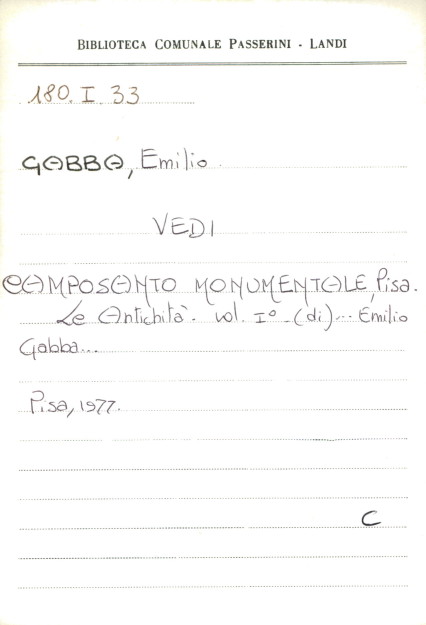 BIBLIOTECA COMUNALE PASSERINI - LANDI
180. I. 33
GABBA, Emilio
VEDI
CAMPOSANTO MONUMENTALE, Pisa.
Le Antichità. vol. I° - (di)... Emilio
Gabba...
Pisa, 1977.
C